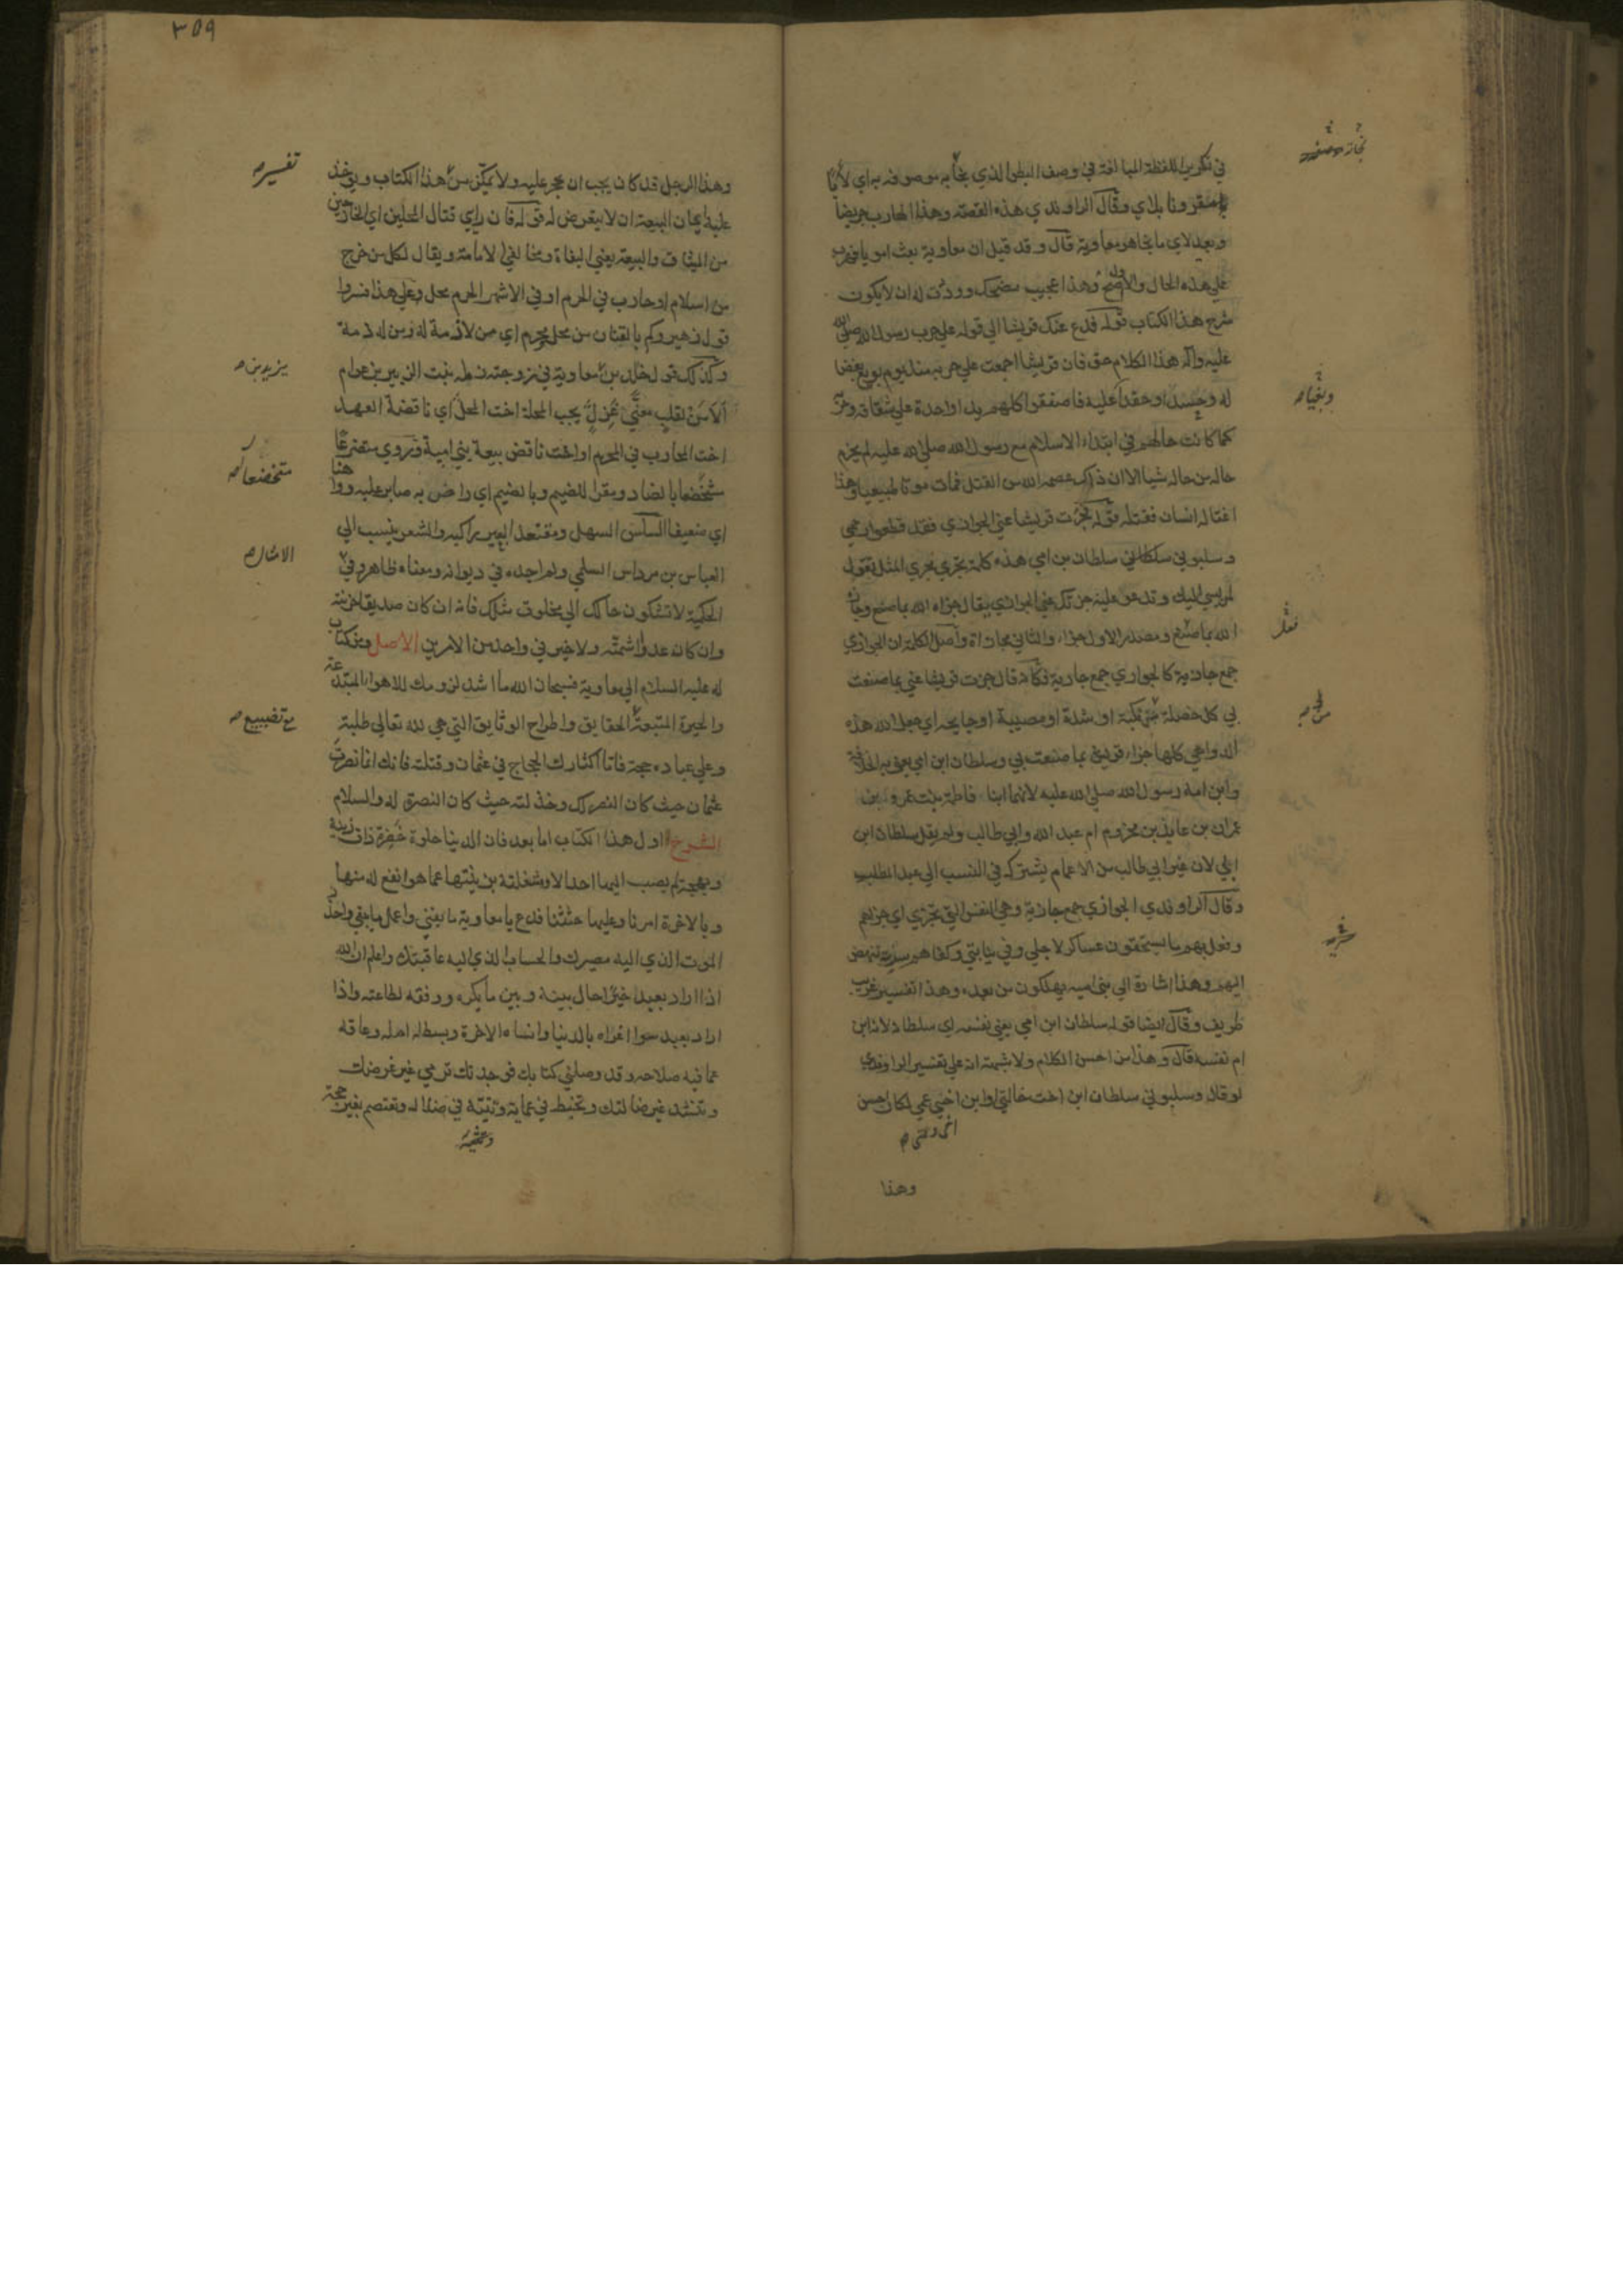 في تكرير اللفظة المبالغة في وصف البطؤ الذي نجا به موصوفه به اي لأيا
مقرونا بلاي وقال الراوندي هذه القصة وهذا الهارب جريضا
وبعيد لاي ما نجا هو معاوية قال وقد قيل ان معاوية بعث امويا فهرب
علي هذه الحال والاول اصح وهذا عجيب مضحك وودت له ان لا يكون
شرح هذا الكتاب قوله فدع عنك قريشا الي قوله علي حرب رسول الله صلي الله
عليه وآله هذا الكلام حق فان قريشا اجمعت علي حربه منذ يوم بويع بغضا
له وحسدا وحقدا عليه فاصفقوا كلهم يدا واحدة علي شقاقه وحربه
كما كانت حالهم في ابتداء الاسلام مع رسول الله صلي الله عليه لم يخرم
حاله من حاله شيا الا ان ذاك عصمه الله من القتل فمات موتا طبيعيا وهذا
اغتاله انسان فقتله قوله فجزت قريشا عني الجوازي فقد قطعوا رحمي
وسلبوني سلطاني سلطان بن امي هذه كلمة تجري مجري المثل تقول
لمن يسي اليك وتدعو عليه جزتك عني الجوازي يقال جزاه الله بما صنع وجازاه
الله بما صنع ومصدر الاول جزاء والثاني مجازاة واصل الكلمة ان الجوازي
جمع جازية كالجواري جمع جارية فكانه قال جزت قريشا عني بما صنعت
بي كل خصلة من نكبة او شدة او مصيبة او جايحة اي جعل الله هذه
الدواهي كلها جزاء قريش بما صنعت بي وسلطان ابن امي يعني به الخلافة
وابن امه رسول الله صلي الله عليه لانهما ابنا فاطمة بنت عمرو بن
عمران بن عايذ بن مخزوم ام عبد الله وابي طالب ولم يقل سلطان ابن
ابي لان غير ابي طالب من الاعمام يشركه في النسب الي عبد المطلب
وقال الراوندي الجوازي جمع جازية وهي النفس التي تجزي اي جزاهم
وفعل بهم ما يستحقون عساكر لاجلي وفي نيابتي وكفاهم سرية تنهض
اليهم وهذا اشارة الي بني اميه يهلكون من بعده وهذا تفسير غريب
ظريف وقال ايضا قوله سلطان ابن امي يعني نفسه اي سلطانه لانه ابن
ام نفسه قال وهذا من احسن الكلام ولا شبهة انه علي تفسير الراوندي
لو قال وسلبوني سلطان ابن اخت خالتي او ابن اخي عمي لكان احسن
وهذا
٣٥٩
وهذا الرجل قد كان يجب ان يحجر عليه ولا يمكن من هذا الكتاب ويوخذ
تفسير
عليه ايمان البيعة ان لا يتعرض له قوله فان رايي قتال المحلين اي الخارجين
من الميثاق والبيعة يعني البغاة ومخالفي الامامة ويقال لكل من خرج
من اسلام او حارب في الحرم او في الاشهر الحرم محل وعلي هذا فسروا
قول زهير وكم بالقنان من محل ومحرم اي من لا ذمة له ومن له ذمة
وكذلك قول خالد بن معاوية في زوجته رملة بنت الزبير بن عوام
يزيد بن
الا من لقلب معني غزل يحب المحلة اخت المحل اي ناقضة العهد
اخت المحارب في الحرم او اخت ناقض بيعة بني امية وروي متضرعا
متخضعا بالضاد ومقرا للضيم وبالضيم اي راض به صابر عليه وواهنا
متخضعا
اي ضعيفا السلس السهل ومقتعد البعير راكبه والشعر ينسب الي
العباس بن مرداس السلمي ولم اجده في ديوانه ومعناه ظاهر وفي
الامثال
الحكمية لا تشكون حالك الي مخلوق مثلك فانه ان كان صديقا احزنته
وان كان عدوا اشمته ولا خير في واحد من الامرين الاصل ومن كتاب
له عليه السلام الي معاوية فسبحان الله ما اشد لزومك للاهواء المبتدعة
والحيرة المتبعة الحقايق واطراح الوثايق التي هي لله تعالي طلبة
مع تضييع
وعلي عباده حجة فاما اكثارك الحجاج في عثمان وقتلته فانك انما نصرت
عثمان حيث كان النصر لك وخذلته حيث كان النصر له والسلام
الشرح اول هذا الكتاب اما بعد فان الدنيا حلوة خضرة ذات زينة
وبهجة لم يصب اليها احد الا وشغلته بزينتها عما هو انفع له منها
وبالاخرة امرنا وعليها حثثنا فدع يا معاوية ما يفني واعمل لما يبقي واحذر
الموت الذي اليه مصيرك والحساب الذي اليه عاقبتك واعلم ان الله
اذا اراد بعبد خيرا حال بينه وبين ما يكره ووفقه لطاعته واذا
اراد بعبد سوا اغراه بالدنيا وانساه الاخرة وبسط له امله وعاقه
عما فيه صلاحه وقد وصلني كتابك فوجدتك ترمي غير غرضك
وتنشد غير ضالتك وتخبط في عماية وتتيه في ضلالة وتعتصم بغير حجة